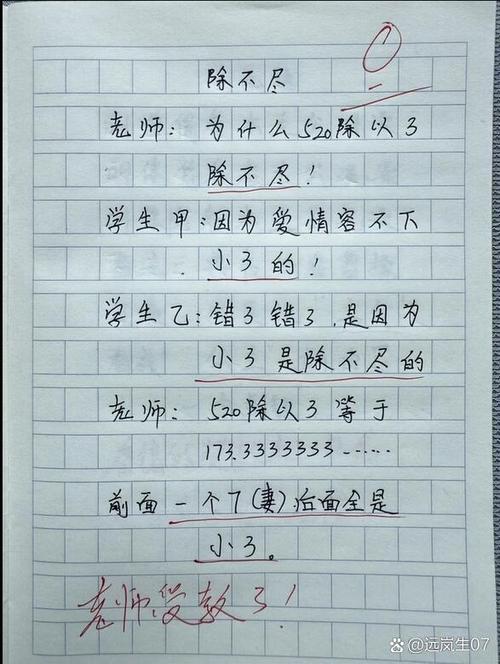 除不尽
老师：为什么520除以3
除不尽！
学生甲：因为爱情容不下
小3的！
学生乙：错了错了，是因为
小3是除不尽的
老师：520除以3等于
173.3333333……
前面一个7(妻)后面全是
小3。
老师受教了！
@远岚生07